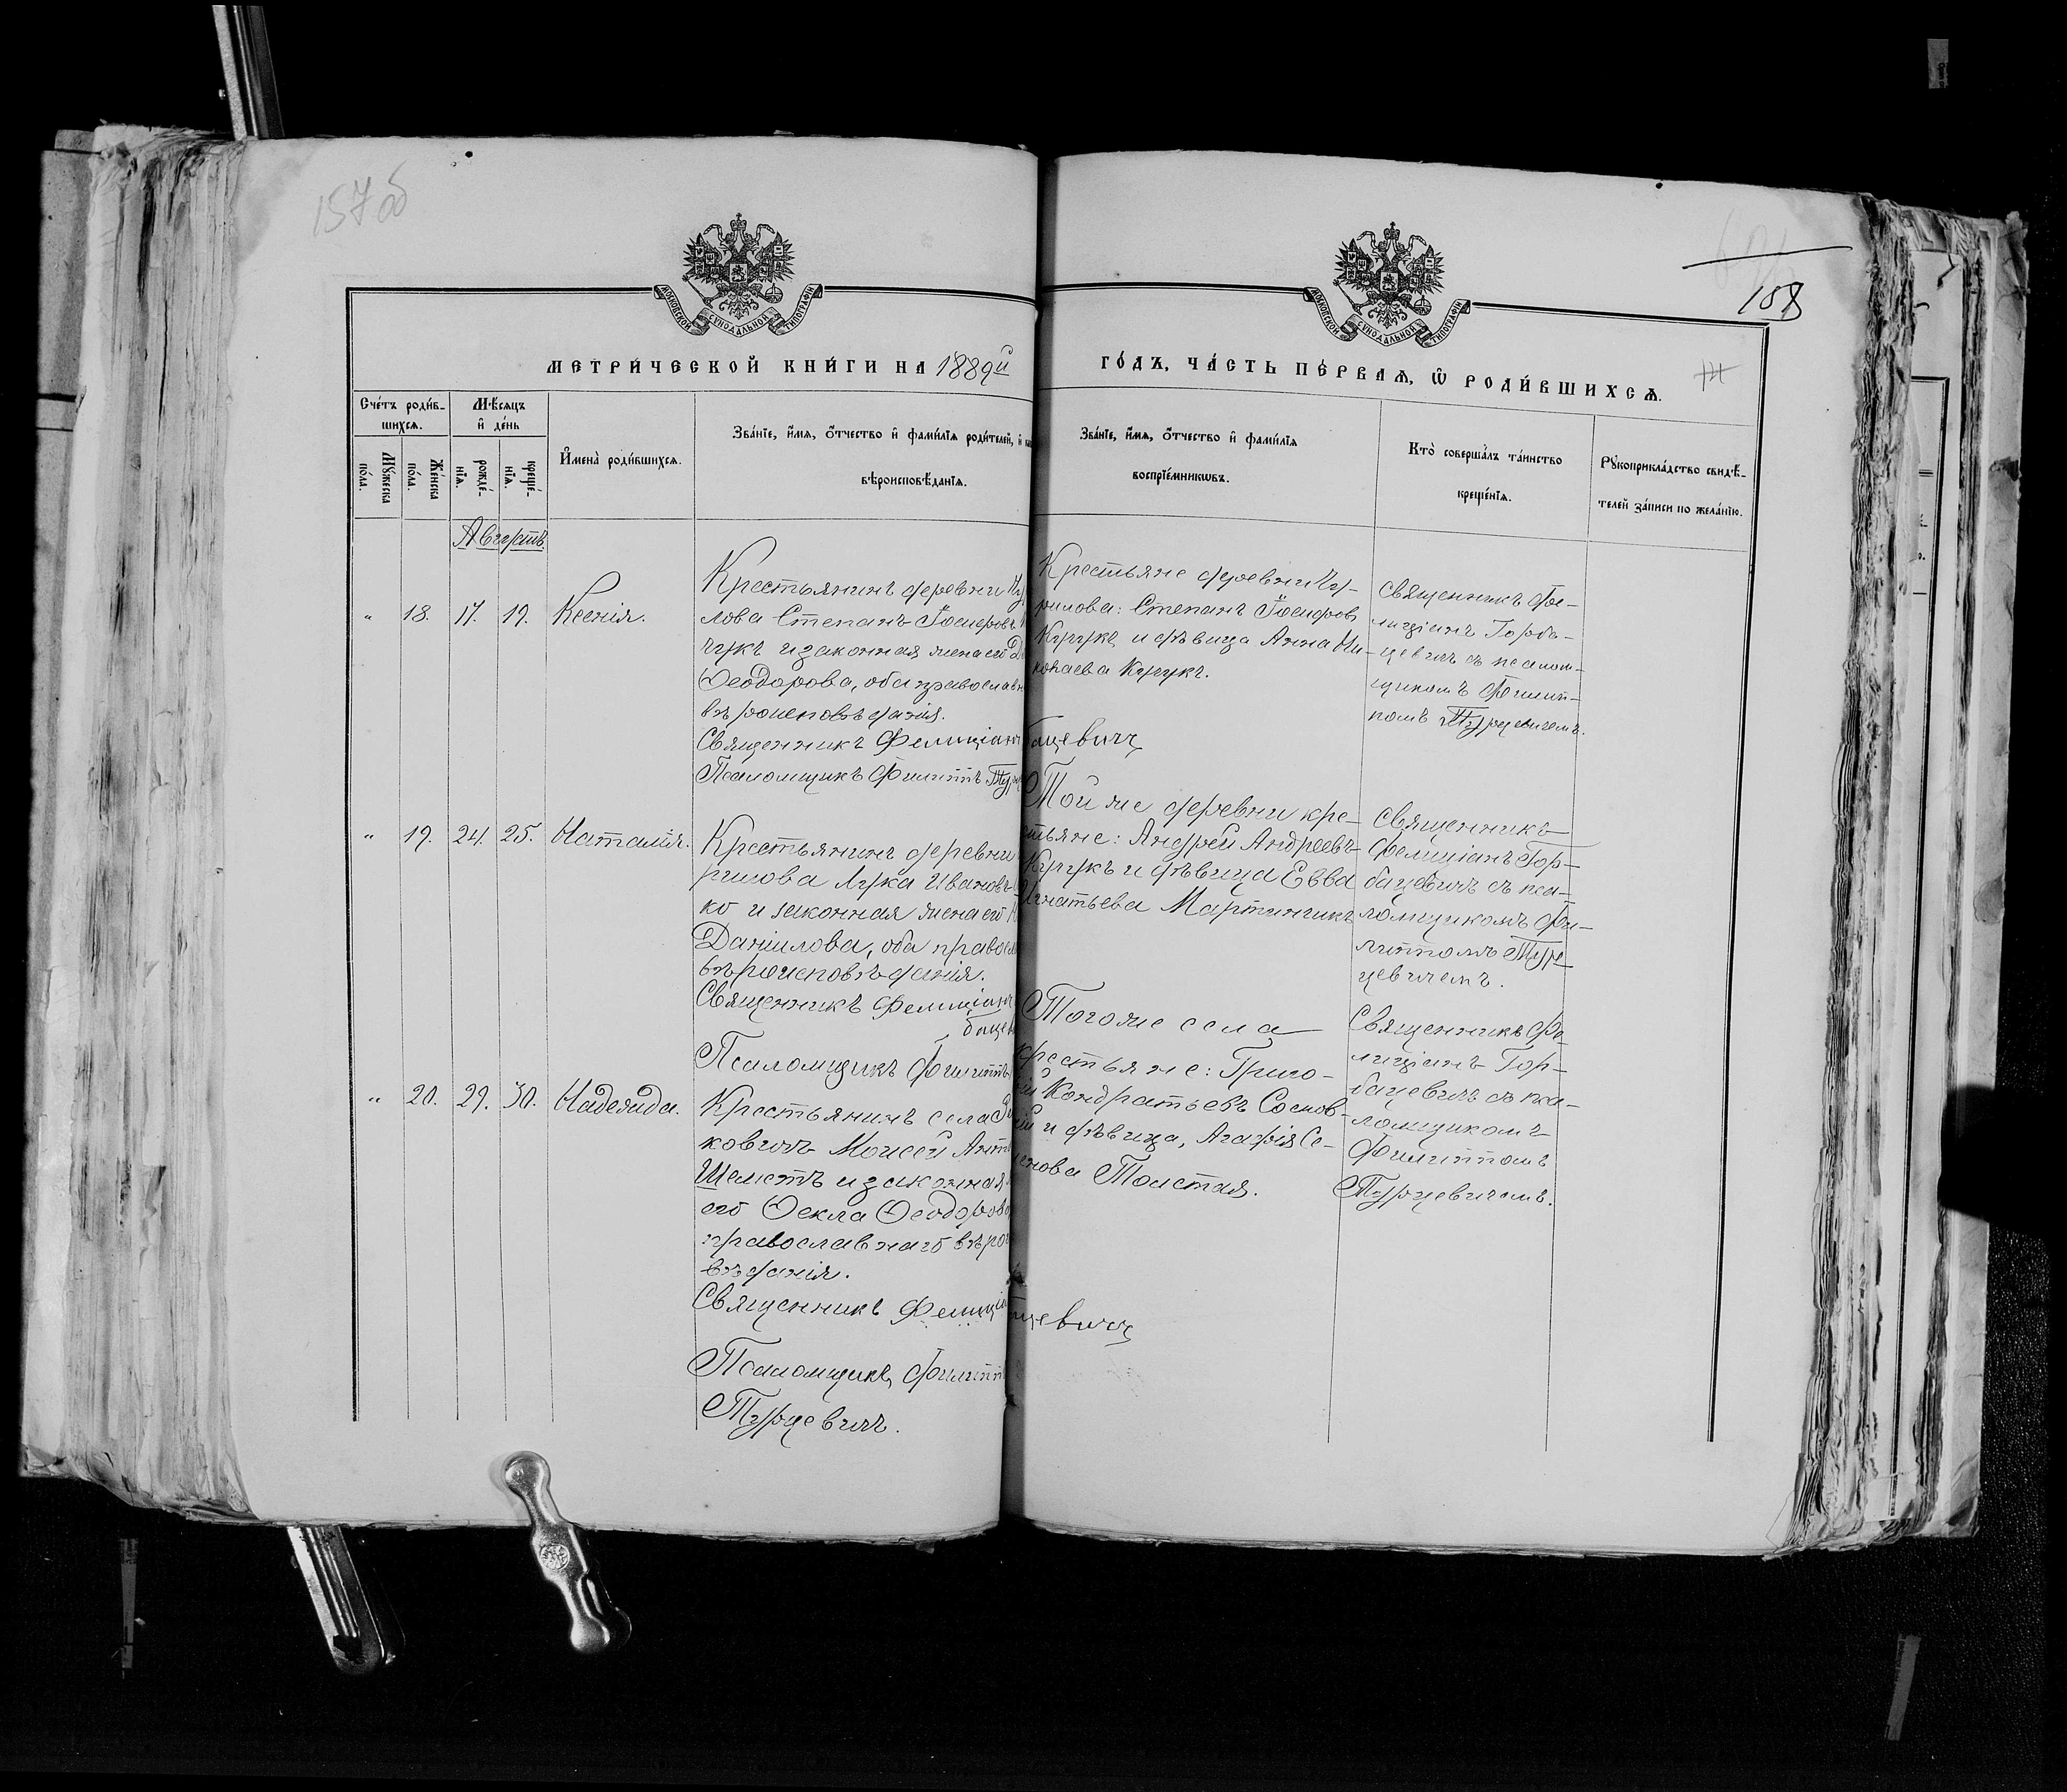 157об
158
МОСКОВСКОЙ СѴНОДАЛЬНОЙ ТИПОГРАФІИ
МОСКОВСКОЙ СѴНОДАЛЬНОЙ ТИПОГРАФІИ
МЕТРИ́ЧЕСКОЙ КНИ́ГИ НА 1889й
ГО́ДЪ, ЧА́СТЬ ПЕ́РВАѦ, Ѡ҆ РОДИ́ВШИХСѦ.
Сче́тъ роди́в-
шихсѧ.
Мꙋ́жеска по́ла.
Же́нска по́ла.
Мѣ́сѧцъ
и҆ де́нь
рожде́-
нїѧ.
креще́-
нїѧ.
И҆мена̀ роди́вшихсѧ.
Зва́нїе, и҆́мѧ, ѻ҆́тчество и҆ фами́лїѧ роди́телей, и҆
вѣроисповѣ́данїѧ.
Зва́нїе, и҆́мѧ, ѻ҆́тчество и҆ фами́лїѧ
воспрїе́мникѡвъ.
Кто̀ соверша́лъ та́инство
креще́нїѧ.
Рꙋкоприкла́дство свидѣ́-
телей за́писи по жела́нїю.
Августъ
" 18. 17. 19. Ксенія.
Крестьянинъ деревни
лова Степанъ Іосифовъ
чукъ и законная жена его
Ѳеодорова, оба православн
вѣроисповѣданія.
Священникъ Фелиціанъ
Псаломщикъ Филиппъ
Крестьяне деревни Чу-
рилова: Степанъ Іосифовъ
Кучукъ и дѣвица Анна Ни-
колаева Кучукъ.
бацевичъ
Священникъ Фе-
лиціанъ Горба-
цевичъ съ псалом-
щикомъ Филип-
помъ Турцевичемъ.
" 19. 24. 25. Наталія.
Крестьянинъ деревни
рилова Лука Ивановъ
ко и законная жена его
Даніилова, оба правосл
вѣроисповѣданія.
Священникъ Фелиціанъ
бацев
Псаломщикъ Филиппъ
Той же деревни кре-
стьяне: Андрей Андреевъ
Кучукъ и дѣвица Евва
Игнатьева Мартинчикъ
Священникъ
Фелиціанъ Гор-
бацевичъ съ пса-
ломщикомъ Фи-
липпомъ Тур-
цевичемъ.
" 20. 29. 30. Надежда.
Крестьянинъ села
ковичъ Моисей Анто
Шелестъ и законная
его Ѳекла Ѳеодорова
православнаго вѣро
вѣданія.
Священникъ Фелиціа
Псаломщикъ Филипп
Турцевичъ.
Того же села
крестьяне: Григо-
рій Кондратьевъ Соснов-
скій и дѣвица, Агафія Се-
менова Толстая.
ацевичъ
Священникъ Фе-
лиціанъ Гор-
бацевичъ съ пса-
ломщикомъ
Филиппомъ
Турцевичемъ.